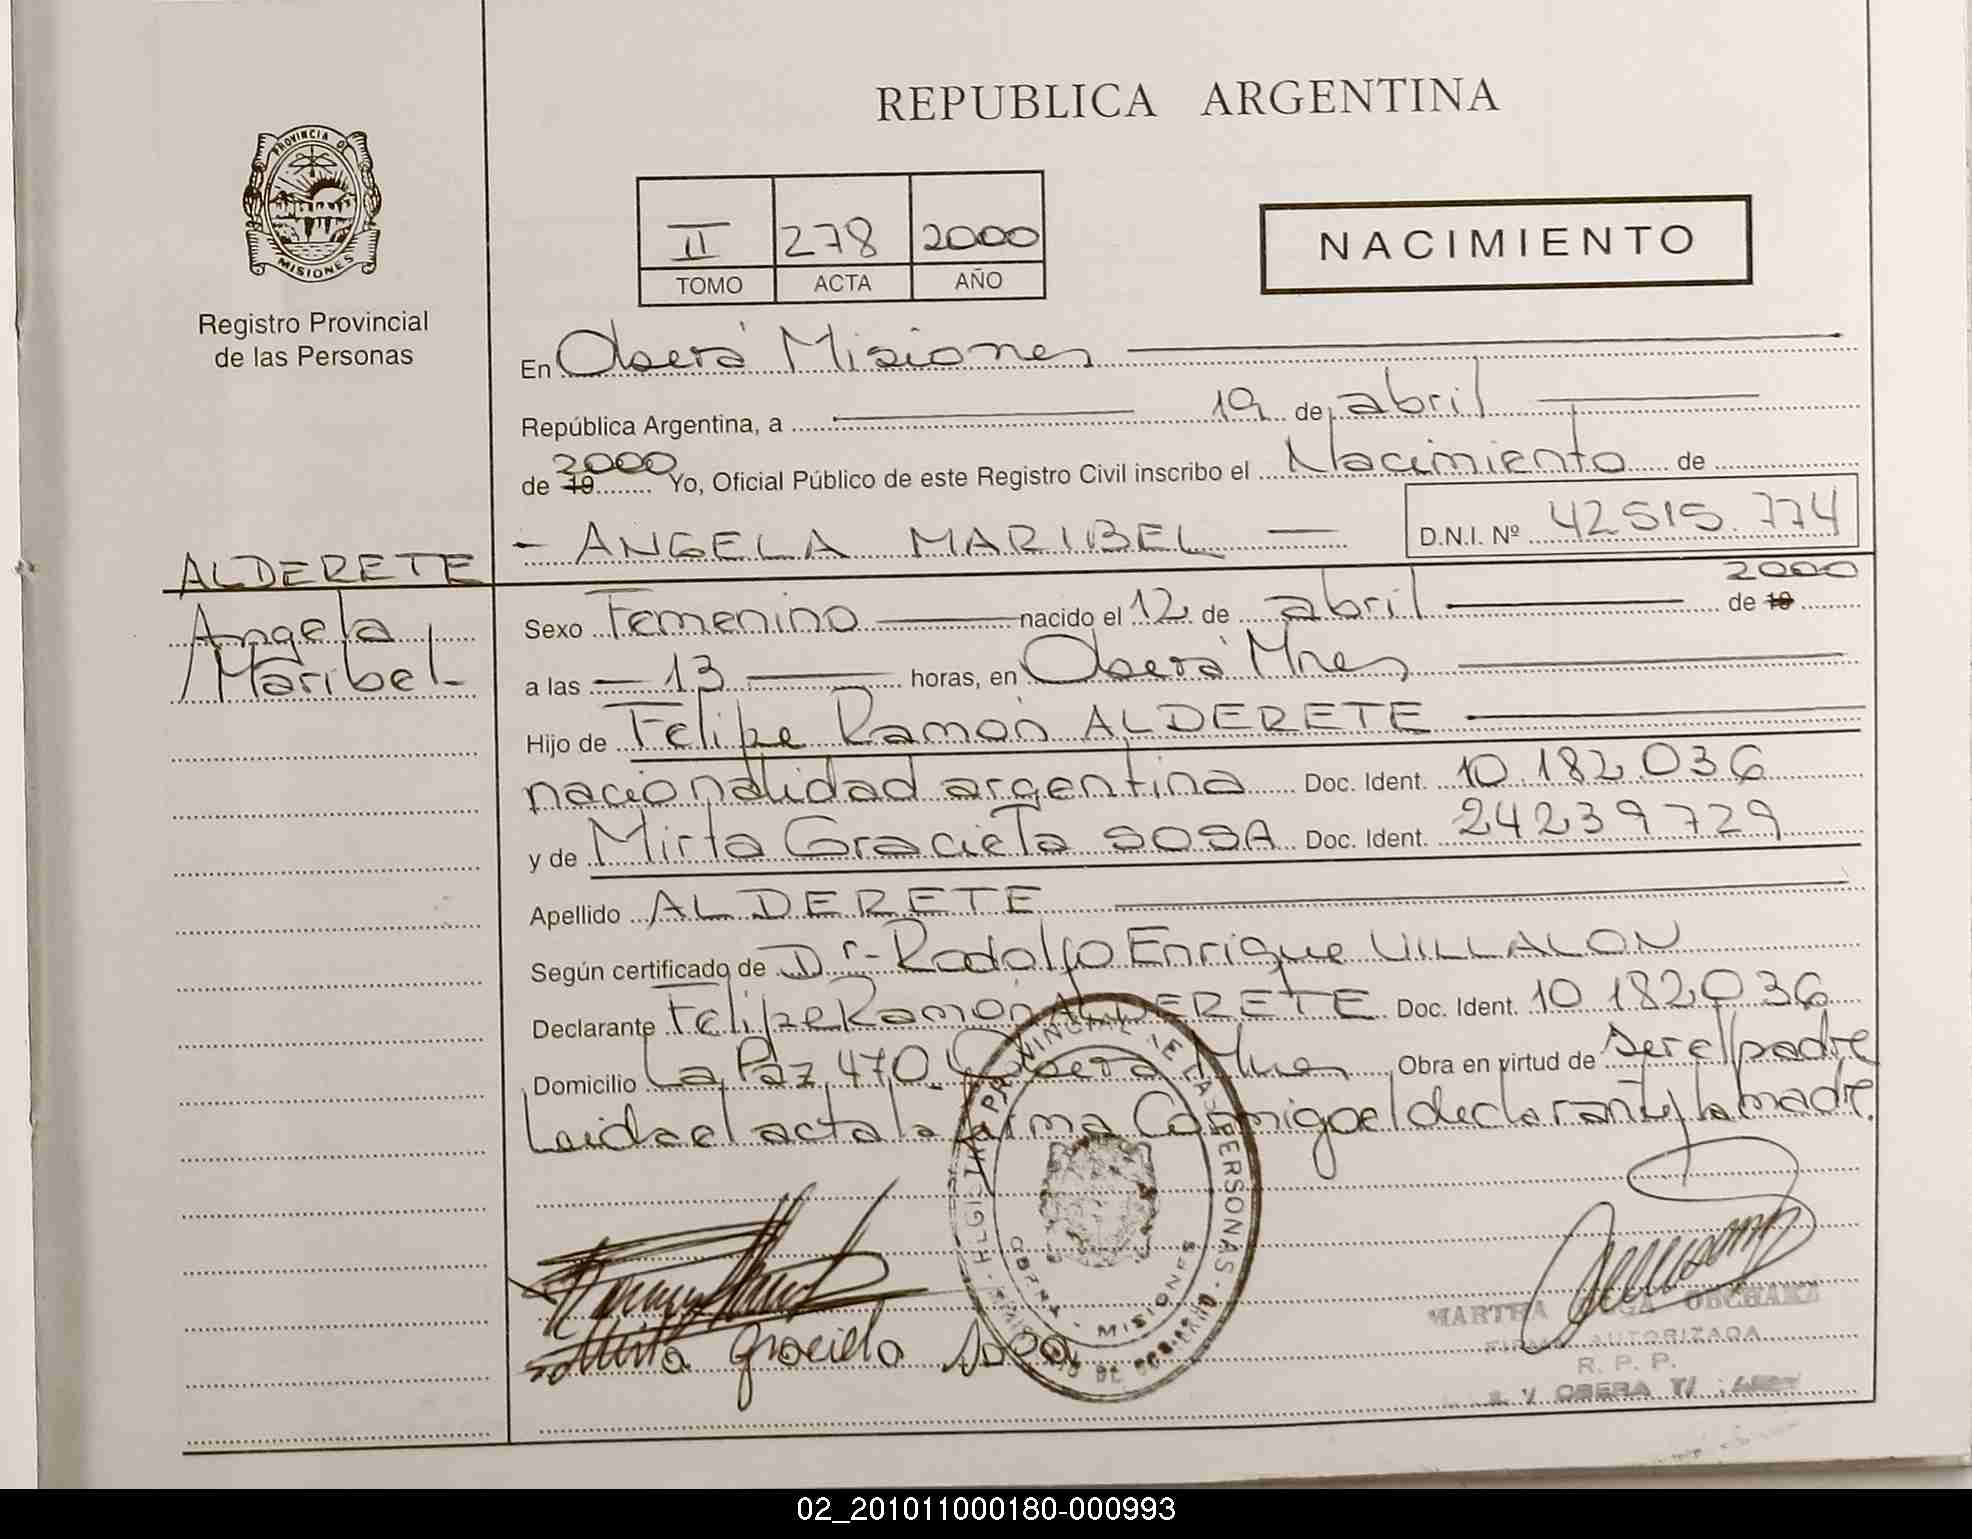 PROVINCIA DE
MISIONES
Registro Provincial
de las Personas
REPUBLICA ARGENTINA
II 278 2000
TOMO ACTA AÑO
NACIMIENTO
En Oberá Misiones
República Argentina, a 19 de abril
de 19 2000 Yo, Oficial Público de este Registro Civil inscribo el Nacimiento de
- ANGELA MARIBEL - D.N.I. Nº 42515.774
ALDERETE
Angela
Maribel
Sexo Femenino nacido el 12 de abril de 19 2000
a las 13 horas, en Oberá Mnes
Hijo de Felipe Ramón ALDERETE
nacionalidad argentina Doc. Ident. 10.182.036
y de Mirta Graciela SOSA Doc. Ident. 24239729
Apellido ALDERETE
Según certificado de Dr- Rodolfo Enrique VILLALON
Declarante Felipe Ramón ALDERETE Doc. Ident. 10.182.036
Domicilio La Paz 470 Oberá Mnes Obra en virtud de ser el padre
Leida el acta la firma Conmigo el declarante y la madre.
PROVINCIAL DE LAS PERSONAS
MISIONES
Mirta Graciela Sosa
MARTHA
FIRMA AUTORIZADA
R. P. P.
OBERA
02_201011000180-000993